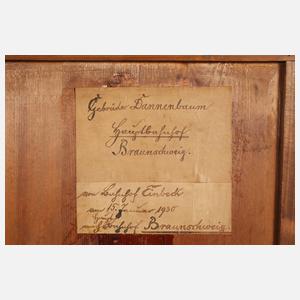 Gebrüder Dannenbaum
Hauptbahnhof
Braunschweig.
von Bahnhof Einbeck
am 15. Januar 1930
nach Bahnhof Braunschweig.